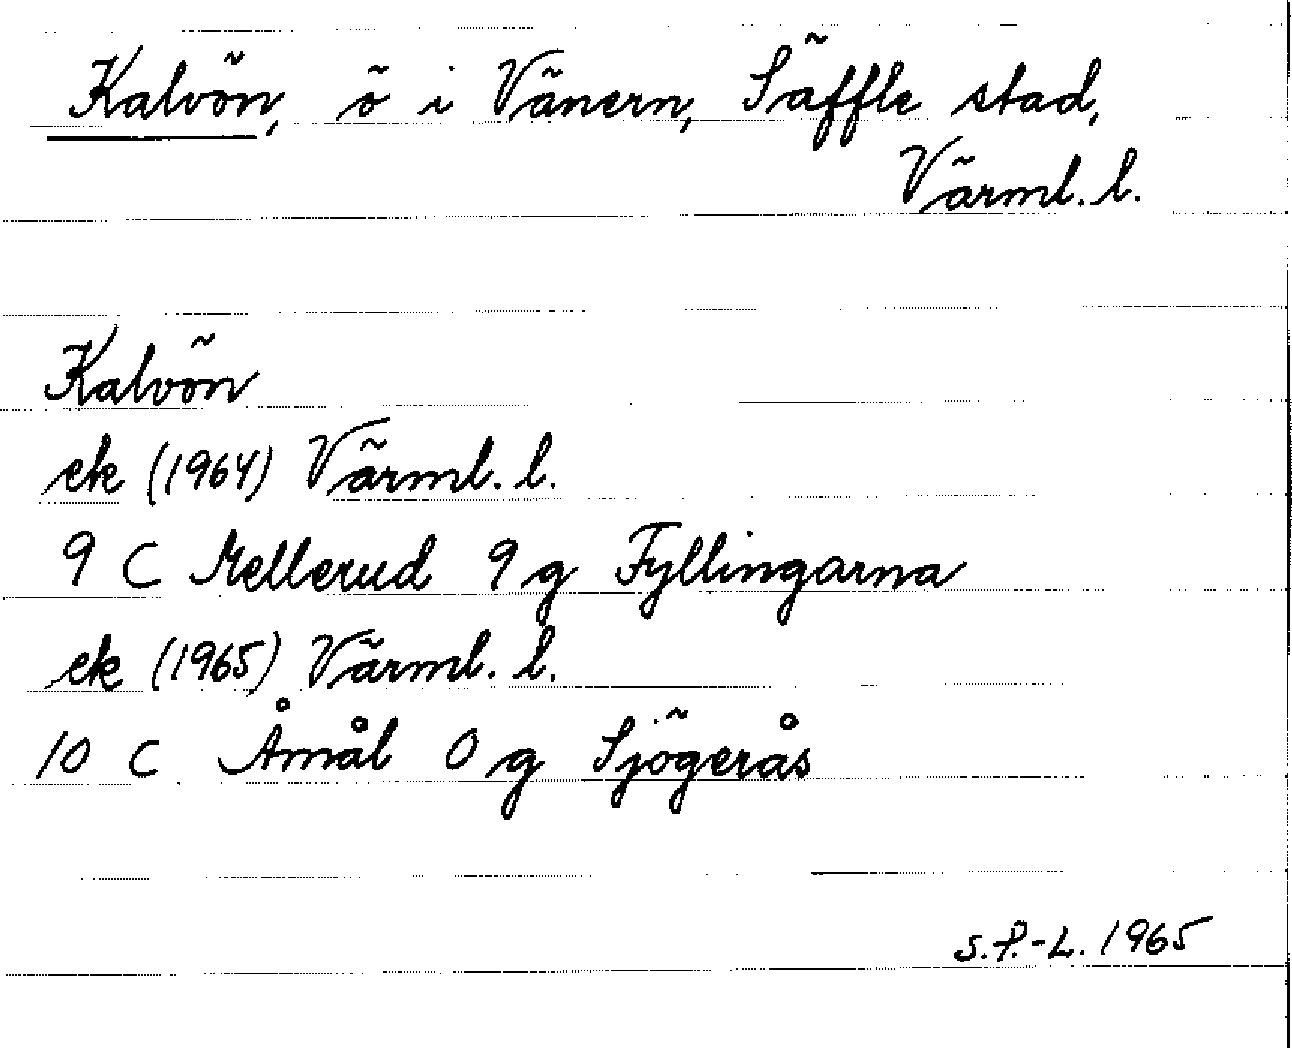 Kalvön, ö i Vänern, Säffle stad,
Värml. l.
Kalvön
ek (1964) Värml. l.
9 C Mellerud 9 g Fyllingarna
ek (1965) Värml. l.
10 C Åmål 0 g Sjögerås
S.P.-L. 1965